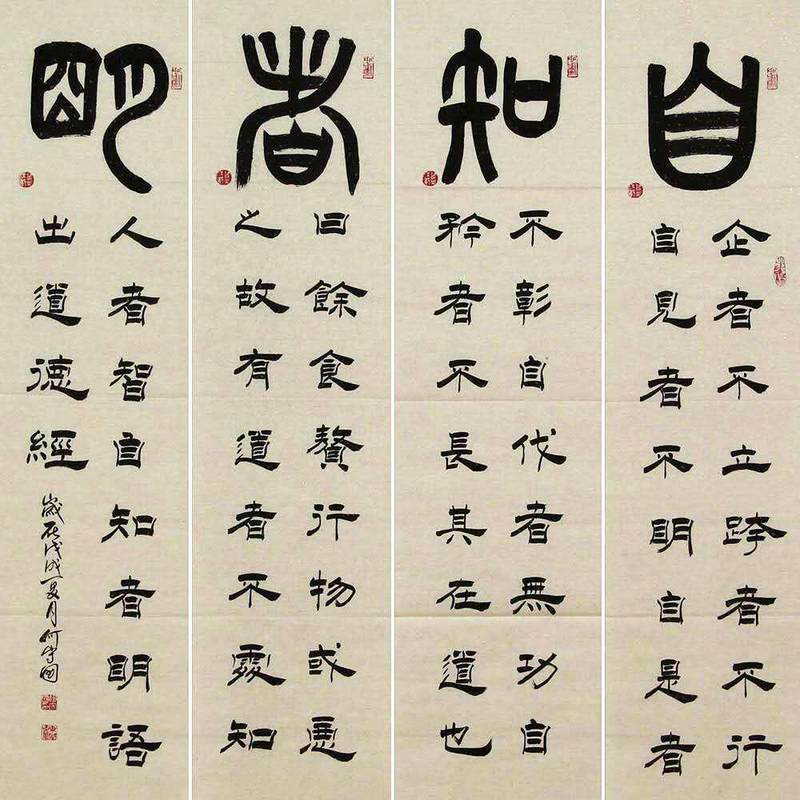 自
企者不立跨者不行
自見者不明自是者
知
不彰自伐者無功自
矜者不長其在道也
者
曰餘食贅行物或惡
之故有道者不處知
明
人者智自知者明語
出道德經
歲在戊戌夏月何